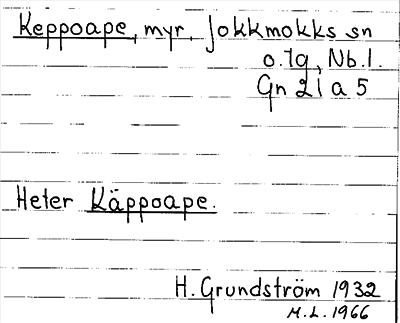 Keppoape, myr, Jokkmokks sn
o. tg, Nb. l.
Gn 21 a 5
Heter Käppoape.
H. Grundström 1932
M. L. 1966